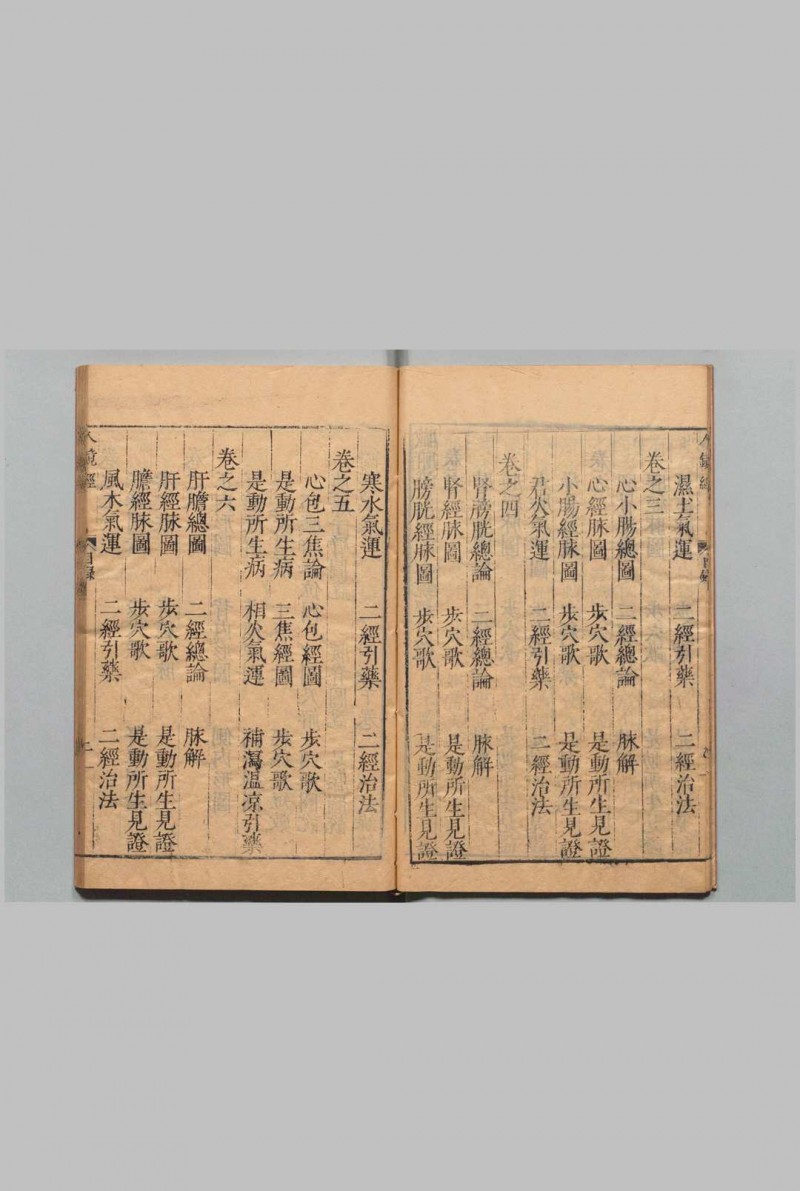 濕土氣運 二經引藥 二經治法
卷之三
心小腸總圖 二經總論 脉解
心經脉圖 步穴歌 是動所生見證
小腸經脉圖 步穴歌 是動所生見證
君火氣運 二經引藥 二經治法
卷之四
腎膀胱總論 二經總論 脉解
腎經脉圖 步穴歌 是動所生見證
膀胱經脉圖 步穴歌 是動所生見證
寒水氣運 二經引藥 二經治法
卷之五
心包三焦論 心包經圖 步穴歌
是動所生病 三焦經圖 步穴歌
是動所生病 相火氣運 補瀉溫凉引藥
卷之六
肝膽總圖 二經總論 脉解
肝經脉圖 步穴歌 是動所生見證
膽經脉圖 步穴歌 是動所生見證
風木氣運 二經引藥 二經治法
人鏡經 目錄 二